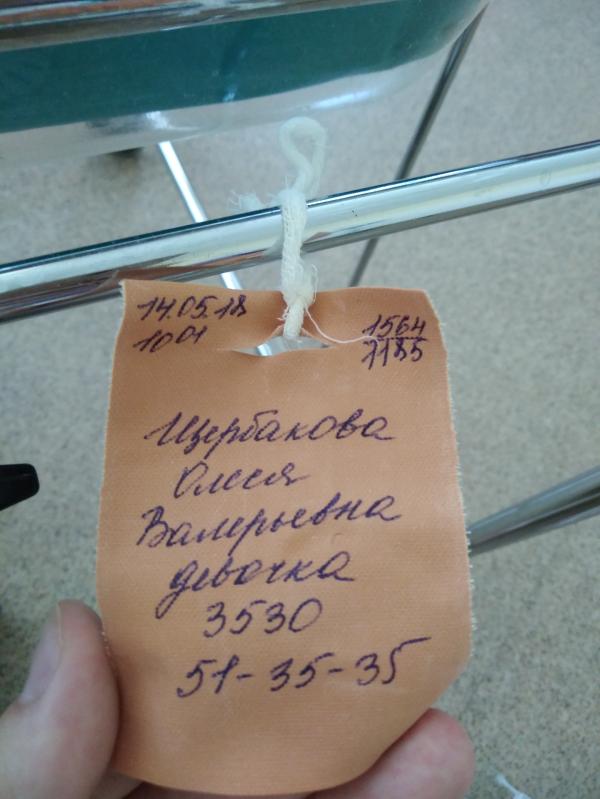 14.05.18
10 01
1564
1185
Щербакова
Олеся
Валерьевна
девочка
3530
51-35-35